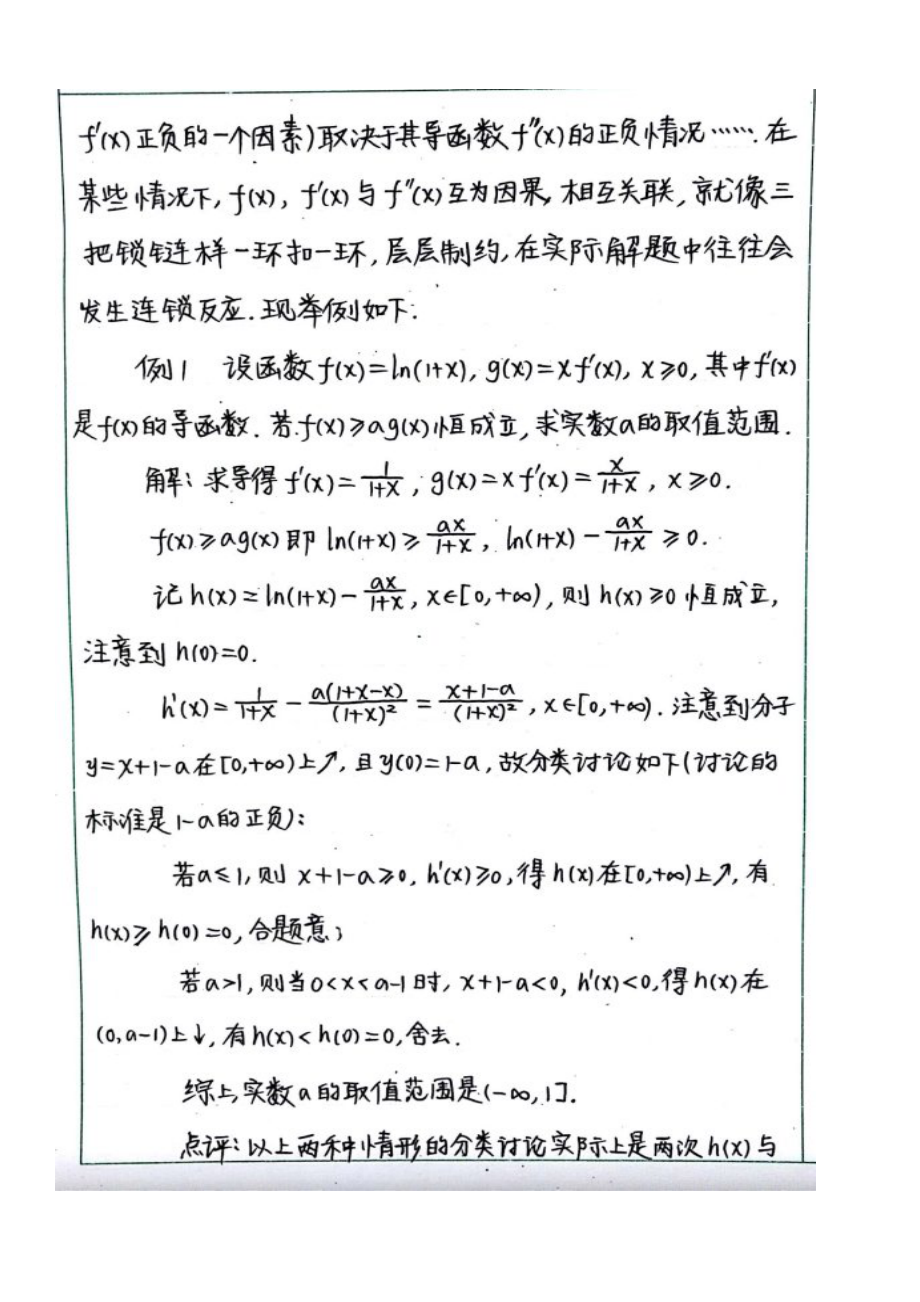 f'(x)正负的一个因素)取决于其导函数f''(x)的正负情况……. 在
某些情况下, f(x), f'(x)与f''(x)互为因果, 相互关联, 就像三
把锁链样一环扣一环, 层层制约, 在实际解题中往往会
发生连锁反应. 现举例如下:
例1 设函数f(x)=ln(1+x), g(x)=xf'(x), x≥0, 其中f'(x)
是f(x)的导函数. 若f(x)≥ag(x)恒成立, 求实数a的取值范围.
解: 求导得f'(x)=1/(1+x), g(x)=xf'(x)=x/(1+x), x≥0.
f(x)≥ag(x)即ln(1+x)≥ax/(1+x), ln(1+x)-ax/(1+x)≥0.
记h(x)=ln(1+x)-ax/(1+x), x∈[0,+∞), 则h(x)≥0恒成立,
注意到h(0)=0.
h'(x)=1/(1+x)-a(1+x-x)/(1+x)²=(x+1-a)/(1+x)², x∈[0,+∞). 注意到分子
y=x+1-a在[0,+∞)上↗, 且y(0)=1-a, 故分类讨论如下(讨论的
标准是1-a的正负):
若a≤1, 则x+1-a≥0, h'(x)≥0, 得h(x)在[0,+∞)上↗, 有
h(x)≥h(0)=0, 合题意;
若a>1, 则当0<x<a-1时, x+1-a<0, h'(x)<0, 得h(x)在
(0,a-1)上↓, 有h(x)<h(0)=0, 舍去.
综上, 实数a的取值范围是(-∞,1].
点评: 以上两种情形的分类讨论实际上是两次h(x)与